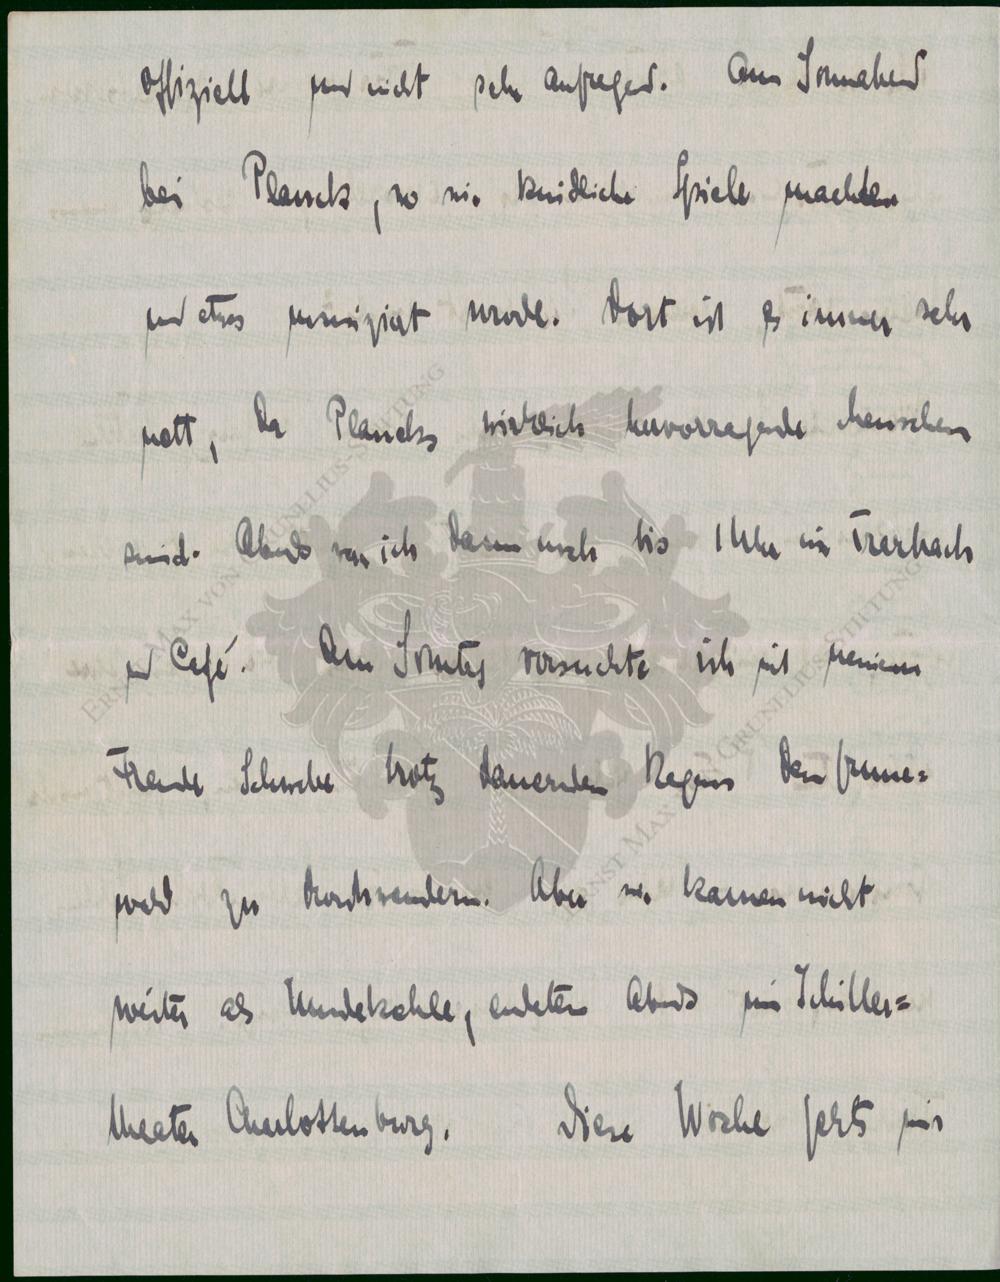 offiziell und nicht sehr aufregend. Am Sonnabend
bei Planck, wo wir kindliche Spiele machten
und etwas musiziert wurde. Dort ist es immer sehr
nett, da Plancks wirklich hervorragende Menschen
sind. Abends war ich dann noch bis 1 Uhr im Trarbach
und Café. Am Sonntag versuchte ich mit meinem
Freunde Schwabe trotz dauernden Regens den Grune=
wald zu durchwandern. Aber wir kamen nicht
weiter als Hundekehle, endeten Abends im Schiller=
theater Charlottenburg. Diese Woche gehts mir
ERNST MAX VON GRUNELIUS-STIFTUNG
ERNST MAX VON GRUNELIUS-STIFTUNG